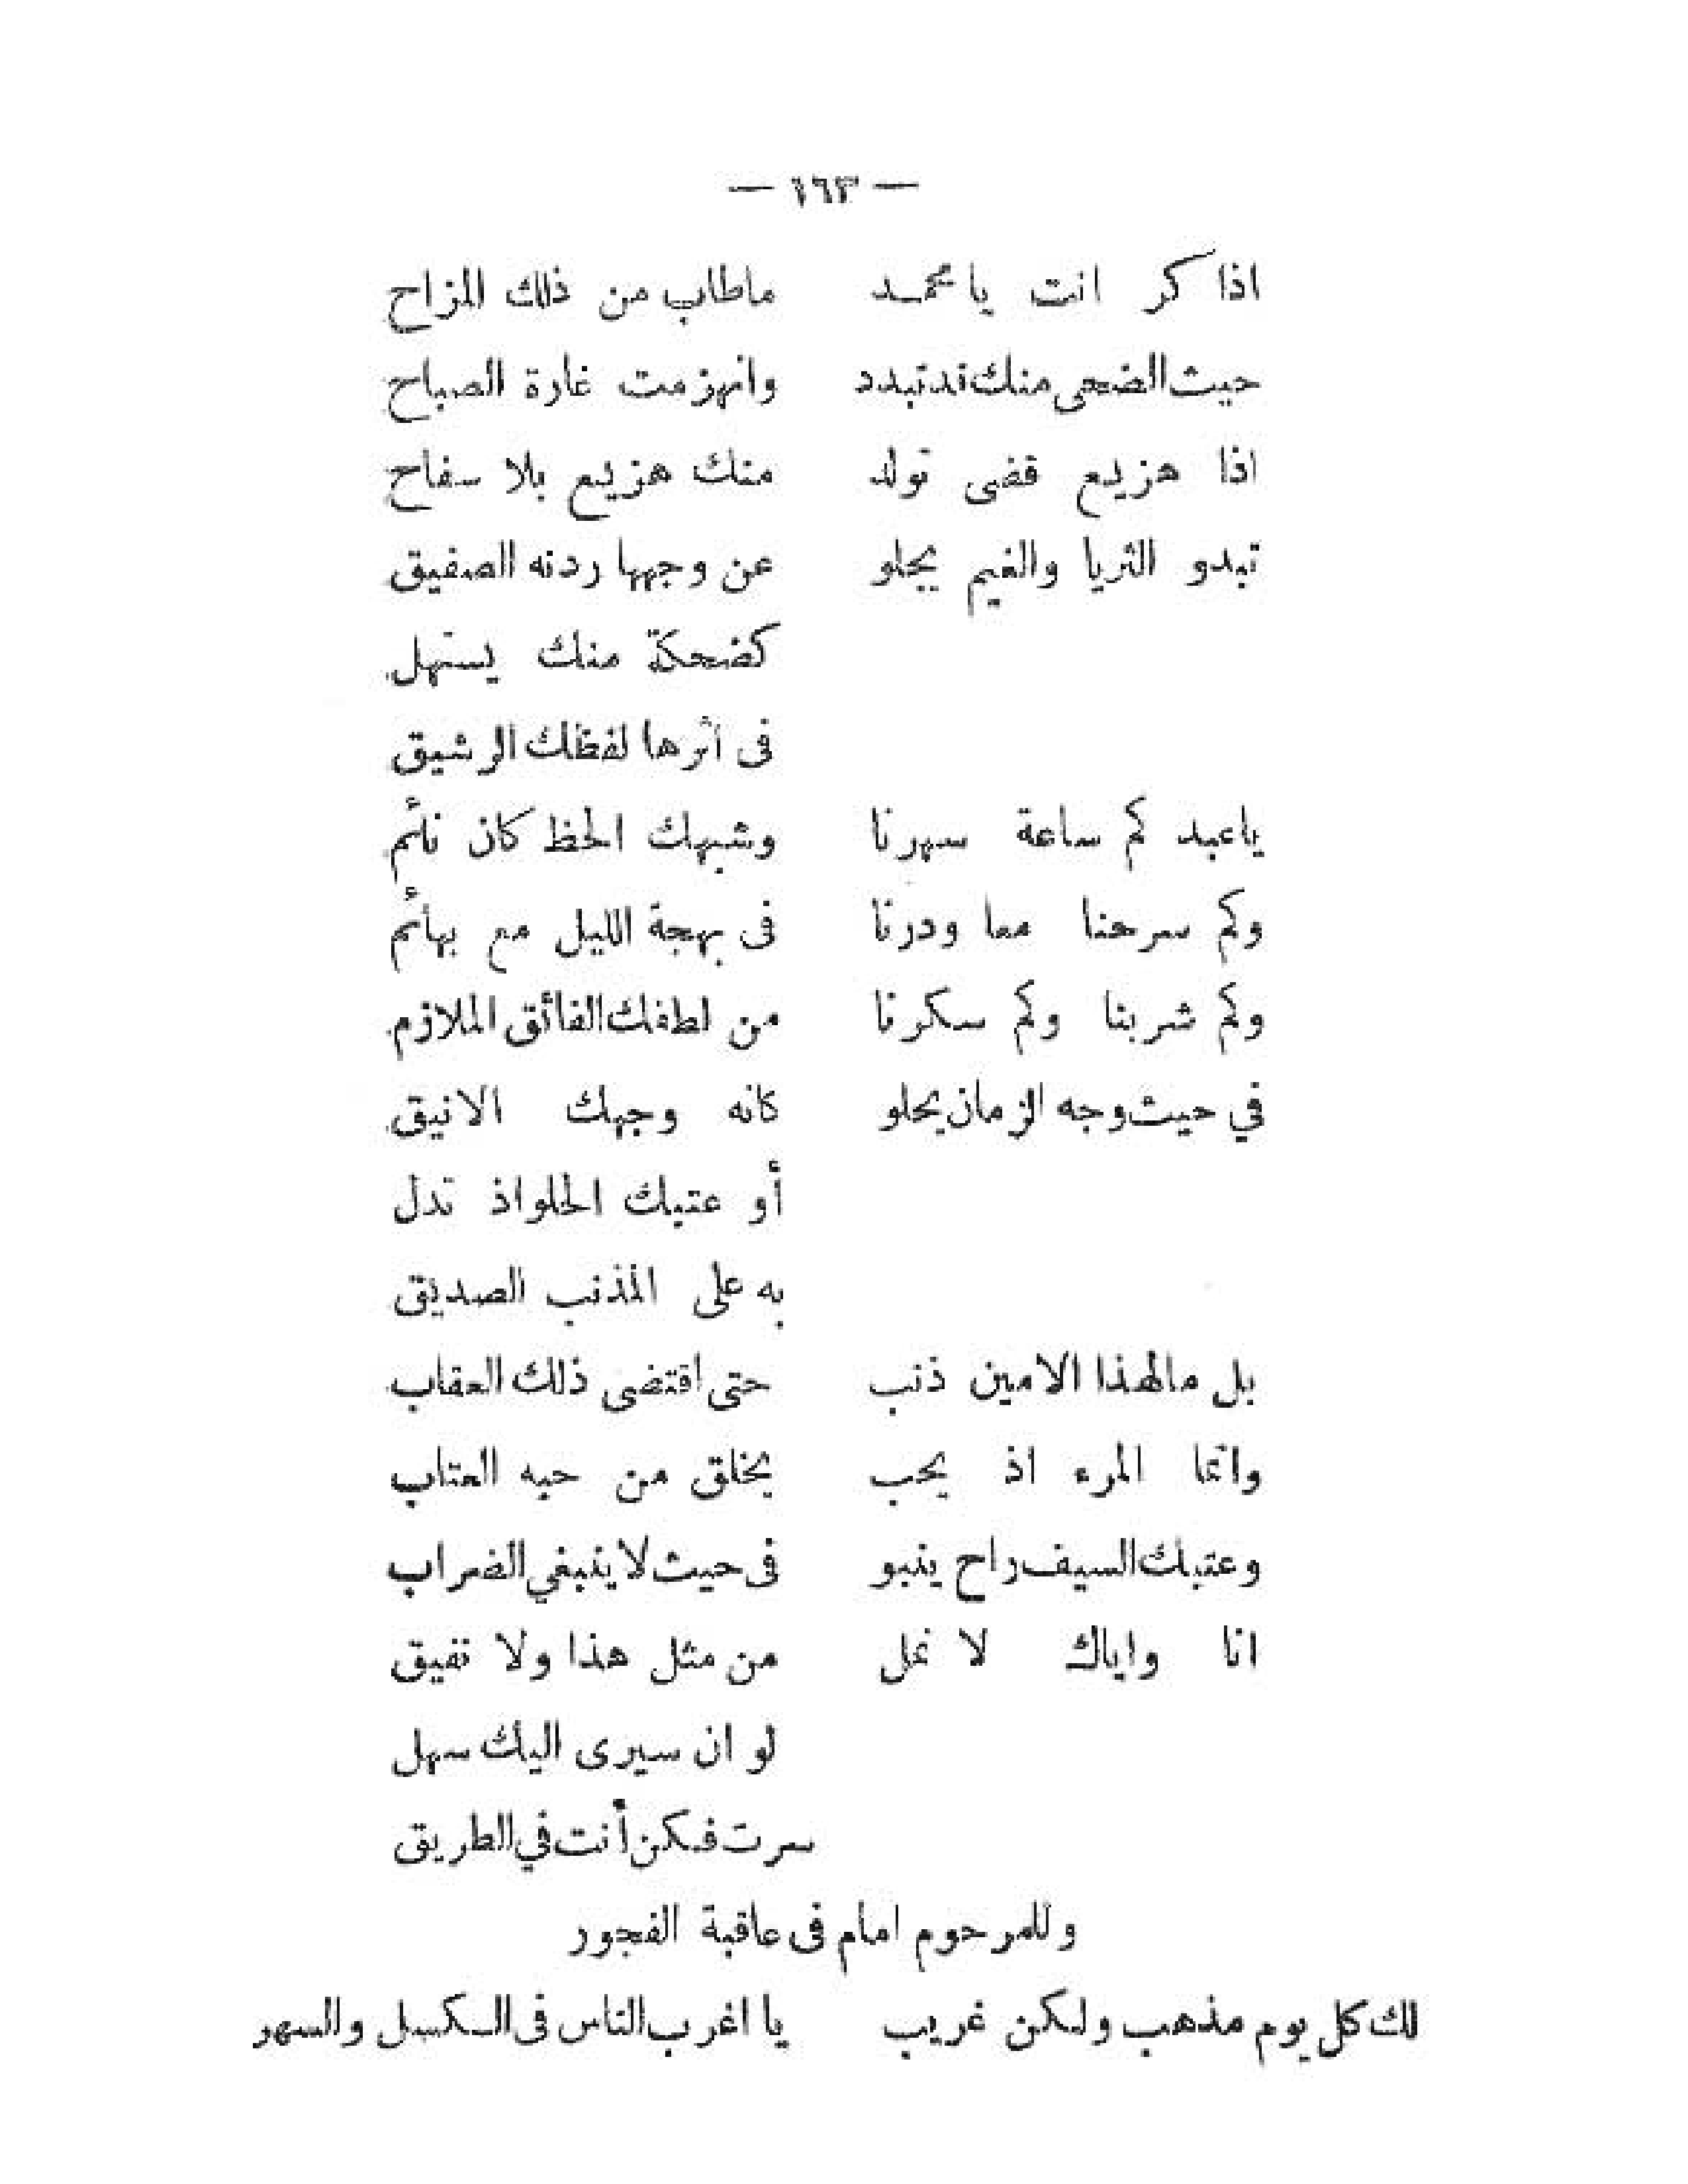 — ١٦٣ —
اذا كر انت يا محمد ماطاب من ذلك المزاح
حيث الضحى منك قد تبدد وانهزمت غارة الصباح
اذا هزيع قضى تولد منك هزيع بلا سفاح
تبدو الثريا والغيم يجلو عن وجهها ردنه الصفيق
كضحكة منك يستهل
فى أثرها لفظك الرشيق
ياعبد كم ساعة سهرنا وشبهك الحظ كان نائم
وكم سرحنا معا ودرنا فى بهجة الليل مع بهائم
وكم شربنا وكم سكرنا من لطفك الفائق الملازم
في حيث وجه الزمان يحلو كانه وجهك الانيق
أو عتبك الحلو اذ تدل
به على المذنب الصديق
بل مالهذا الامين ذنب حتى اقتضى ذلك العقاب
وانما المرء اذ يحب يخلق من حبه العتاب
وعتبك السيف راح ينبو فى حيث لا ينبغي الضراب
انا واياك لا نمل من مثل هذا ولا نفيق
لو ان سيرى اليك سهل
سرت فكن أنت في الطريق
وللمرحوم امام فى عاقبة الفجور
لك كل يوم مذهب ولكن غريب يا اغرب الناس فى الكسل والسهر